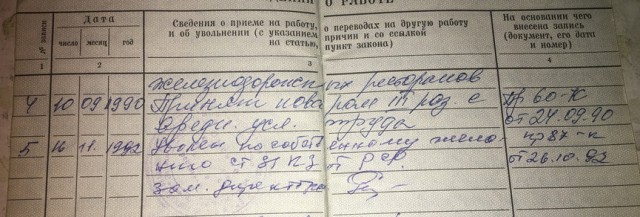 О РАБОТЕ
№ записи
Дата
число
месяц
год
Сведения о приеме на работу, о переводах на другую работу
и об увольнении (с указанием причин и со ссылкой
на статью, пункт закона)
На основании чего
внесена запись
(документ, его дата
и номер)
1 2 3 4
железнодорожных ресторанов
4 10 09 1990 Принят поваром III раз. с пр 60-к
вредн. усл. труда от 24.09.90
5 16 11 1992 Уволен по собственному жела- пр 87-к
нию ст 31 КЗоТ РФ. от 26.10.92
зам. директора